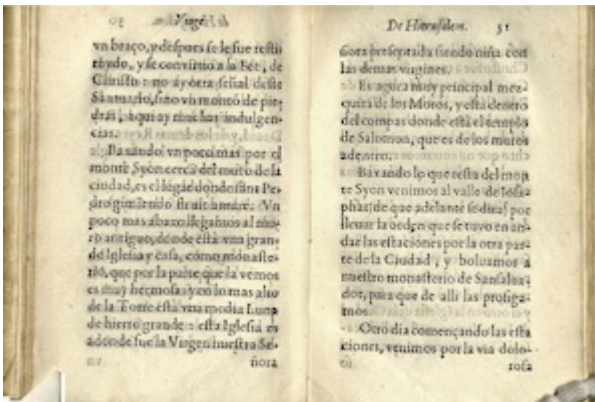 Viage
vn braço, y despues se le fue resti
tuydo, y se conuirtio a la Fee, de
Christo: no ay otra señal deste
Santuario, sino vn montō de pie
dras, aqui ay muchas indulgen-
cias.
Baxando vn poco mas por el
monte Syon cerca del muro de la
ciudad, es el lugar donde sant Pe-
dro gimiendo
poco mas abaxo llegamos al mu-
ro antiguo, donde està vna gran-
de Iglesia y casa, como monaste-
rio, que por la parte que la vemos
es muy hermosa: y en lo mas alto
de la Torre está vna media Luna
de hierro grande: esta Iglesia es
adonde fue la Virgen nuestra Se-
ñora
De Hierusalem. 31
ñora presentada siendo niña con
las demas virgines.
Es agora muy principal mez-
quita de los Moros, y està dentro
del compas donde està el templo
de Salomon, que es de los muros
adentro.
Baxando lo que resta del mon
te Syon venimos al valle de Iosa-
phat: de que adelante se dira: por
lleuar la orden que se tuuo en an-
dar las estaciones por la otra par-
te de la Ciudad, y boluamos à
nuestro monasterio de San Salua-
dor, para que de alli las prosiga-
mos.
Otro dia començando las esta
ciones, venimos por la via dolo-
rosa